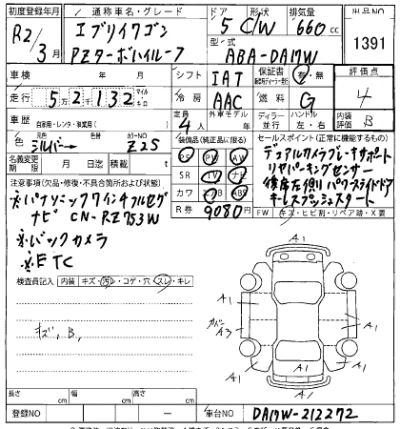 初度登録年月 通称車名・グレード ドア 形状 排気量 出品NO
R2/3月 エブリイワゴン 5 C/W 660cc 1391
PZターボハイルーフ 型式 ABA-DA17W
車検 年 月 シフト IAT 保証書 有・無 評価点
走行 52,132 冷房 AAC 燃料 G 4
車歴 自家用・レンタ・事業用 定員 4人 外車モデル年 ディーラー 並行 ハンドル 左・右 内装評価 B
色 元色 シルバー カラーNO Z2S 装備品(純正品に限る) セールスポイント(正常に機能するもの)
名義変更期限 月 日迄 積載 t PS PW AW デュアルカメラブレーキサポート
SR TV ナビ リヤパーキングセンサー
注意事項(欠品・修復・不具合箇所および状態) カワ ABS 後席左側パワースライドドア
※パナソニック7インチフルセグ R券 9080円 キーレスプッシュスタート
ナビ CN-RZ753W FW キズ・ヒビ割・リペア跡・X要
※バックカメラ
※ETC
検査員記入 内装 キズ・汚レ・コゲ・穴・スレ・キレ
キズ,B,
A1
A1
カバー
A3
A1
A1
A1
長さ cm 幅 cm 高さ cm
登録NO ー 車台NO DA17W-212272